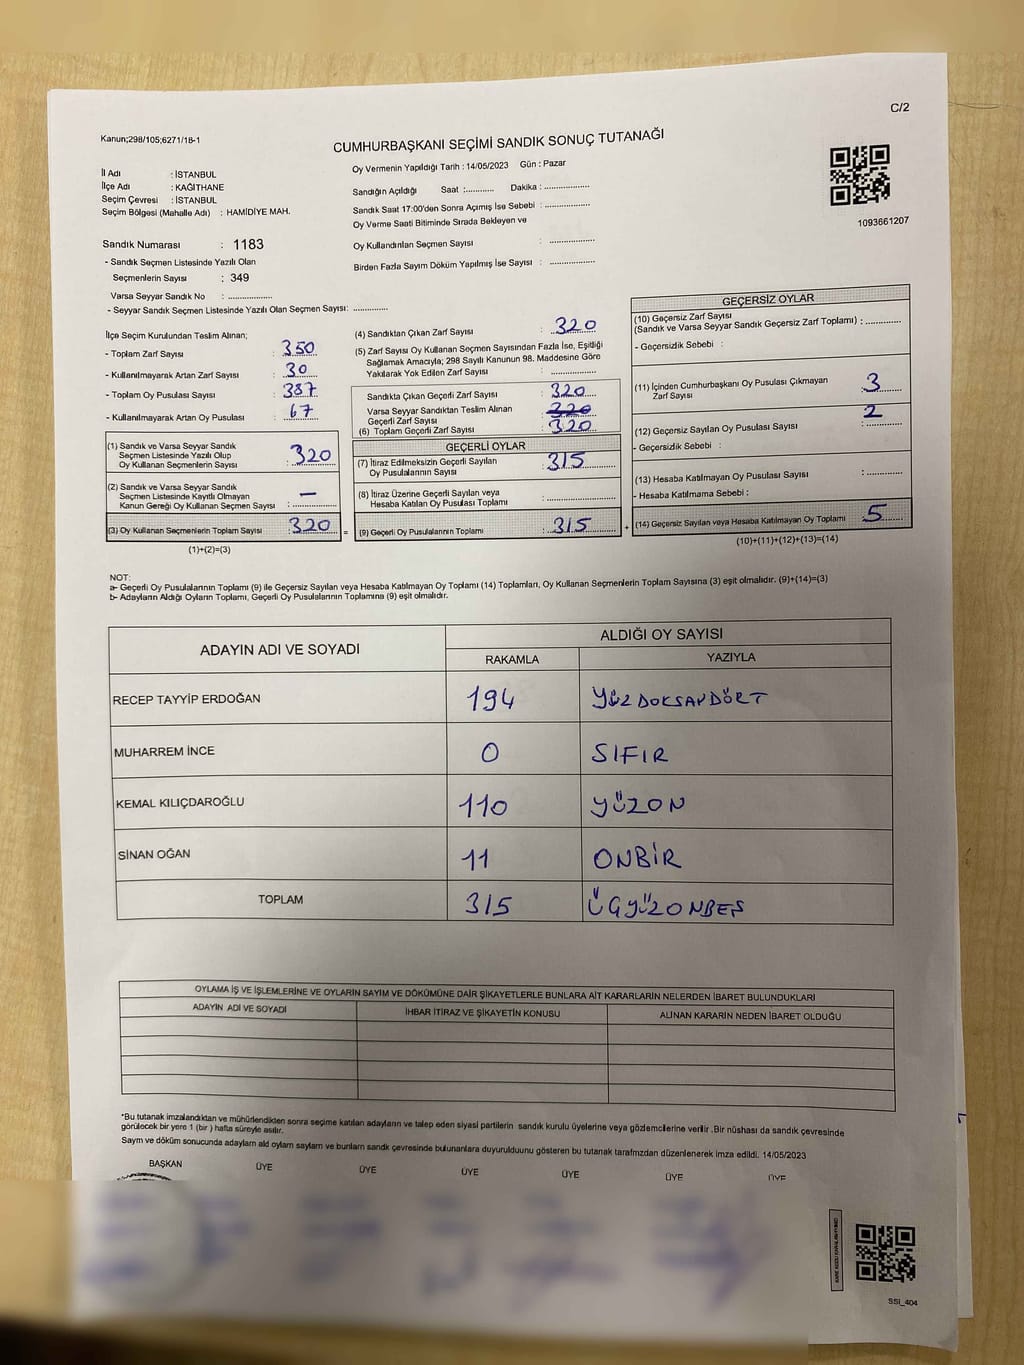 C/2
Kanun;298/105;6271/18-1
CUMHURBAŞKANI SEÇİMİ SANDIK SONUÇ TUTANAĞI
Oy Vermenin Yapıldığı Tarih : 14/05/2023 Gün : Pazar
İl Adı : İSTANBUL
İlçe Adı : KAĞITHANE
Seçim Çevresi : İSTANBUL
Seçim Bölgesi (Mahalle Adı) : HAMİDİYE MAH.
Sandığın Açıldığı Saat :............ Dakika : ..................
Sandık Saat 17:00'den Sonra Açımış İse Sebebi : ..................
Oy Verme Saati Bitiminde Sırada Bekleyen ve
Oy Kullandırılan Seçmen Sayısı : ..................
Birden Fazla Sayım Döküm Yapılmış İse Sayısı : ..................
1093661207
Sandık Numarası : 1183
- Sandık Seçmen Listesinde Yazılı Olan
Seçmenlerin Sayısı : 349
Varsa Seyyar Sandık No : ..................
- Seyyar Sandık Seçmen Listesinde Yazılı Olan Seçmen Sayısı: ..............
İlçe Seçim Kurulundan Teslim Alınan;
- Toplam Zarf Sayısı : 350
- Kullanılmayarak Artan Zarf Sayısı : 30
- Toplam Oy Pusulası Sayısı : 387
- Kullanılmayarak Artan Oy Pusulası : 67
(1) Sandık ve Varsa Seyyar Sandık
Seçmen Listesinde Yazılı Olup
Oy Kullanan Seçmenlerin Sayısı : 320
(2) Sandık ve Varsa Seyyar Sandık
Seçmen Listesinde Kayıtlı Olmayan
Kanun Gereği Oy Kullanan Seçmen Sayısı : —
(3) Oy Kullanan Seçmenlerin Toplam Sayısı : 320 =
(1)+(2)=(3)
(4) Sandıktan Çıkan Zarf Sayısı : 320
(5) Zarf Sayısı Oy Kullanan Seçmen Sayısından Fazla İse, Eşitliği
Sağlamak Amacıyla; 298 Sayılı Kanunun 98. Maddesine Göre
Yakılarak Yok Edilen Zarf Sayısı : ..................
Sandıkta Çıkan Geçerli Zarf Sayısı : 320
Varsa Seyyar Sandıktan Teslim Alınan
Geçerli Zarf Sayısı : 320
(6) Toplam Geçerli Zarf Sayısı : 320
GEÇERLİ OYLAR
(7) İtiraz Edilmeksizin Geçerli Sayılan
Oy Pusulalarının Sayısı : 315
(8) İtiraz Üzerine Geçerli Sayılan veya
Hesaba Katılan Oy Pusulası Toplamı : ..................
(9) Geçerli Oy Pusulalarının Toplamı : 315 +
GEÇERSİZ OYLAR
(10) Geçersiz Zarf Sayısı
(Sandık ve Varsa Seyyar Sandık Geçersiz Zarf Toplamı) : ..............
- Geçersizlik Sebebi :
(11) İçinden Cumhurbaşkanı Oy Pusulası Çıkmayan
Zarf Sayısı : 3
(12) Geçersiz Sayılan Oy Pusulası Sayısı : 2
- Geçersizlik Sebebi :
(13) Hesaba Katılmayan Oy Pusulası Sayısı : ..............
- Hesaba Katılmama Sebebi :
(14) Geçersiz Sayılan veya Hesaba Katılmayan Oy Toplamı : 5
(10)+(11)+(12)+(13)=(14)
NOT:
a- Geçerli Oy Pusulalarının Toplamı (9) ile Geçersiz Sayılan veya Hesaba Katılmayan Oy Toplamı (14) Toplamları, Oy Kullanan Seçmenlerin Toplam Sayısına (3) eşit olmalıdır. (9)+(14)=(3)
b- Adayların Aldığı Oyların Toplamı, Geçerli Oy Pusulalarının Toplamına (9) eşit olmalıdır.
ADAYIN ADI VE SOYADI ALDIĞI OY SAYISI
RAKAMLA YAZIYLA
RECEP TAYYİP ERDOĞAN 194 YÜZDOKSANDÖRT
MUHARREM İNCE 0 SIFIR
KEMAL KILIÇDAROĞLU 110 YÜZON
SİNAN OĞAN 11 ONBİR
TOPLAM 315 ÜÇYÜZONBEŞ
OYLAMA İŞ VE İŞLEMLERİNE VE OYLARIN SAYIM VE DÖKÜMÜNE DAİR ŞİKAYETLERLE BUNLARA AİT KARARLARIN NELERDEN İBARET BULUNDUKLARI
ADAYIN ADI VE SOYADI İHBAR İTİRAZ VE ŞİKAYETİN KONUSU ALINAN KARARIN NEDEN İBARET OLDUĞU
*Bu tutanak imzalandıktan ve mühürlendikten sonra seçime katılan adayların ve talep eden siyasi partilerin sandık kurulu üyelerine veya gözlemcilerine verilir .Bir nüshası da sandık çevresinde
görülecek bir yere 1 (bir ) hafta süreyle asılır.
Sayım ve döküm sonucunda adayların ald oyların sayların ve bunların sandık çevresinde bulunanlara duyurulduunu gösteren bu tutanak tarafmzdan düzenlenerek imza edildi. 14/05/2023
BAŞKAN ÜYE ÜYE ÜYE ÜYE ÜYE ÜYE
SSI_404